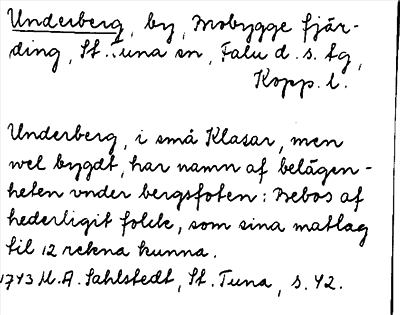 Underberg, by, Mobygge fjär-
ding, St. Tuna sn, Falu d. s. tg,
Kopp. l.
Underberg, i små Klasar, men
wel bygdt, har namn af belägen-
heten vnder bergsfoten: Bebos af
hederligit folck, som sina matlag
til 12 rekna kunna.
1743 M. A. Sahlstedt, St. Tuna, s. 42.